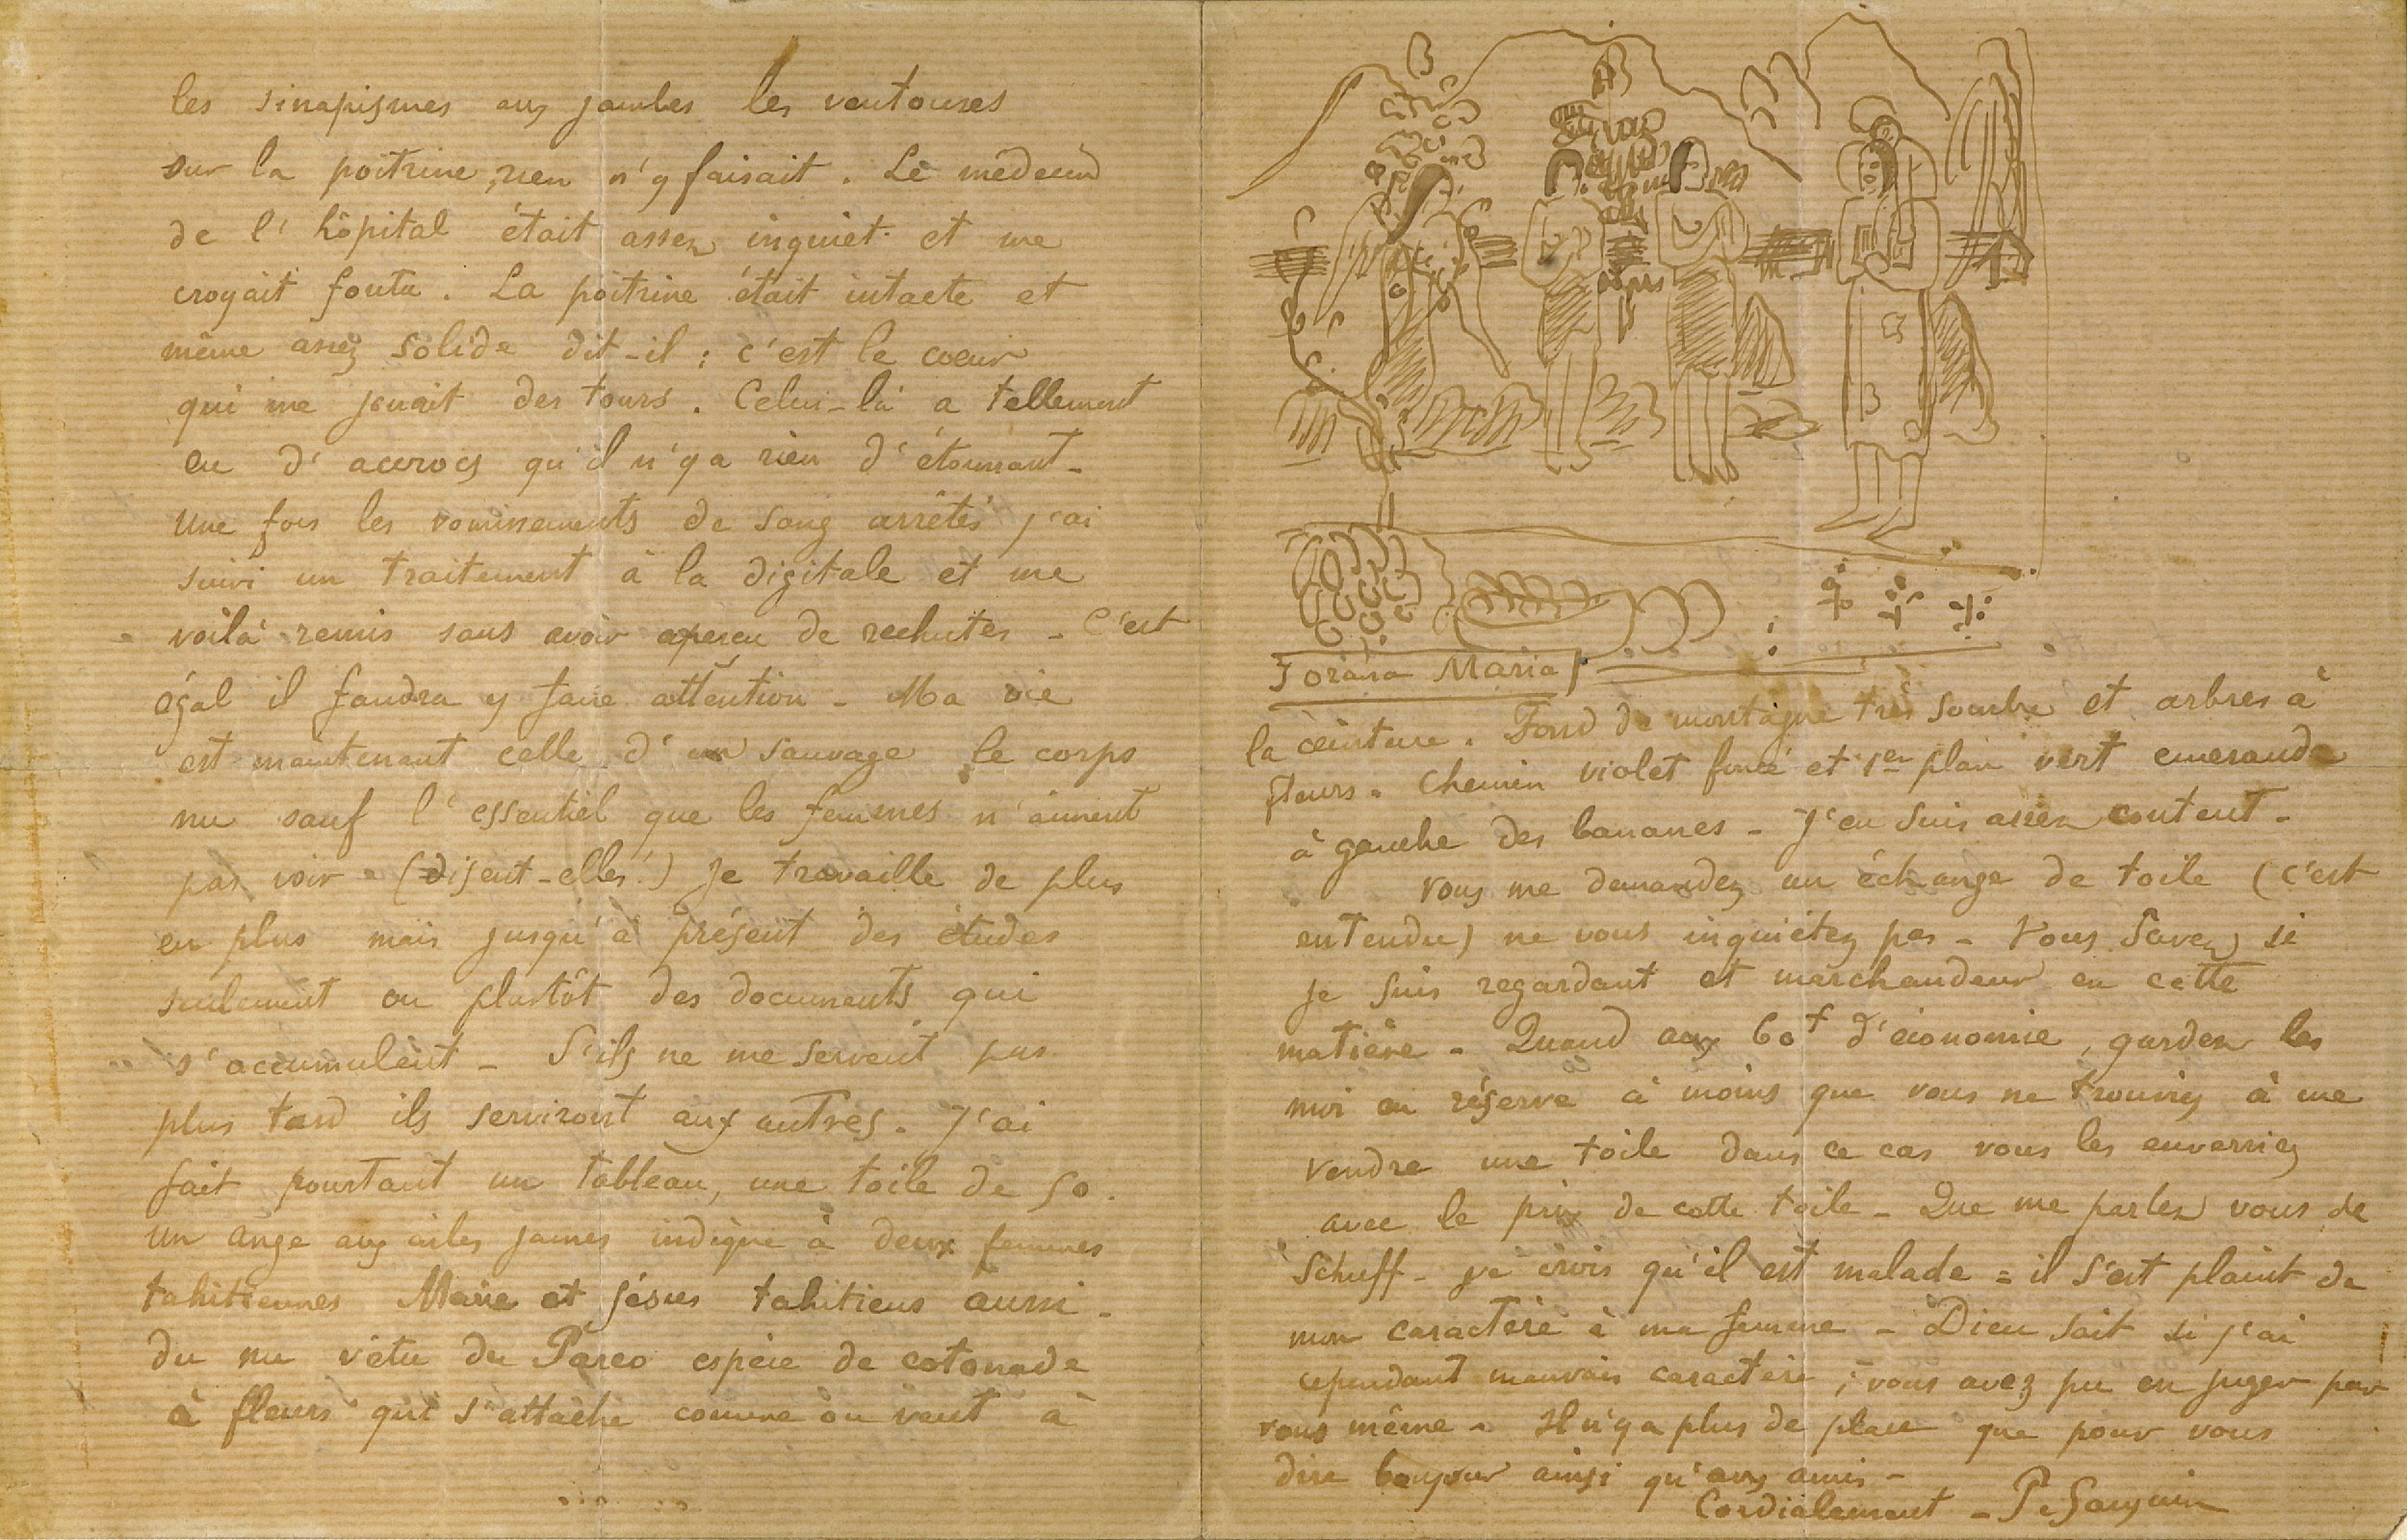 les sinapismes aux jambes les ventouses
sur la poitrine, rien n'y faisait. Le médecin
de l'hôpital était assez inquiet et me
croyait foutu. La poitrine était intacte et
même assez solide dit-il; c'est le coeur
qui me jouait des tours. Celui-là a tellement
eu d'accrocs qu'il n'y a rien d'étonnant -
Une fois les vomissements de sang arrêtés j'ai
suivi un traitement à la digitale et me
voilà remis sans avoir aperçu de rechutes - C'est
égal il faudra y faire attention - Ma vie
est maintenant celle d'un sauvage le corps
nu sauf l'essentiel que les femmes n'aiment
pas voir - (disent-elles!) Je travaille de plus
en plus mais jusqu'à présent des études
seulement ou plutôt des documents qui
s'accumulent - S'ils ne me servent pas
plus tard ils serviront aux autres. J'ai
fait pourtant un tableau, une toile de 50.
Un ange aux ailes jaunes indique à deux femmes
tahitiennes Marie et Jésus tahitiens aussi -
du nu vêtu du Pareo espèce de cotonade
à fleurs qui s'attache comme on veut à
Iorana Maria
la ceinture. Fond de montagne très sombre et arbres à
fleurs. Chemin violet foncé et 1er plan vert emeraude
à gauche des bananes - J'en suis assez content -
Vous me demandez un échange de toile (c'est
entendu) ne vous inquiétez pas - Vous savez si
je suis regardant et marchandeur en cette
matière - Quand aux 60f d'économie, gardez les
moi en réserve à moins que vous ne trouviez à me
vendre une toile dans ce cas vous les enverriez
avec le prix de cette toile - Que me parlez vous de
Schuff - je crois qu'il est malade = il s'est plaint de
mon caractère à ma femme - Dieu sait si j'ai
cependant mauvais caractère; vous avez pu en juger par
vous même - Il n'y a plus de place que pour vous
dire bonjour ainsi qu'aux amis -
Cordialement - P. Gauguin